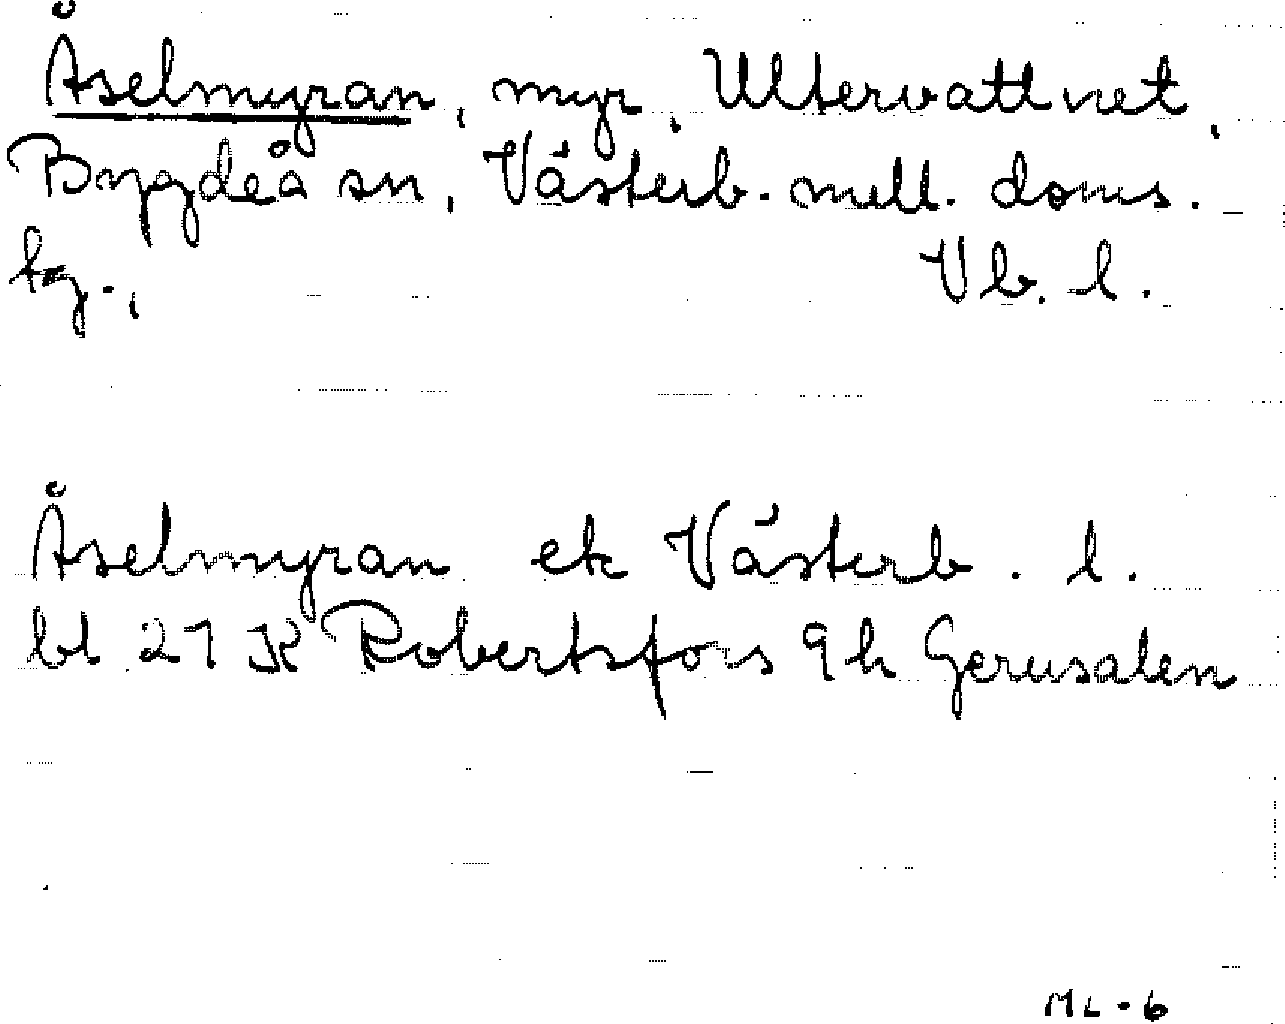 Åselmyran, myr, Ultervattnet,
Bygdeå sn, Västerb. mell. doms.
hg., Vb. l.
Åselmyran ek Västerb. l.
bl 21 K Robertsfors 9h Gerusalen
ML-6